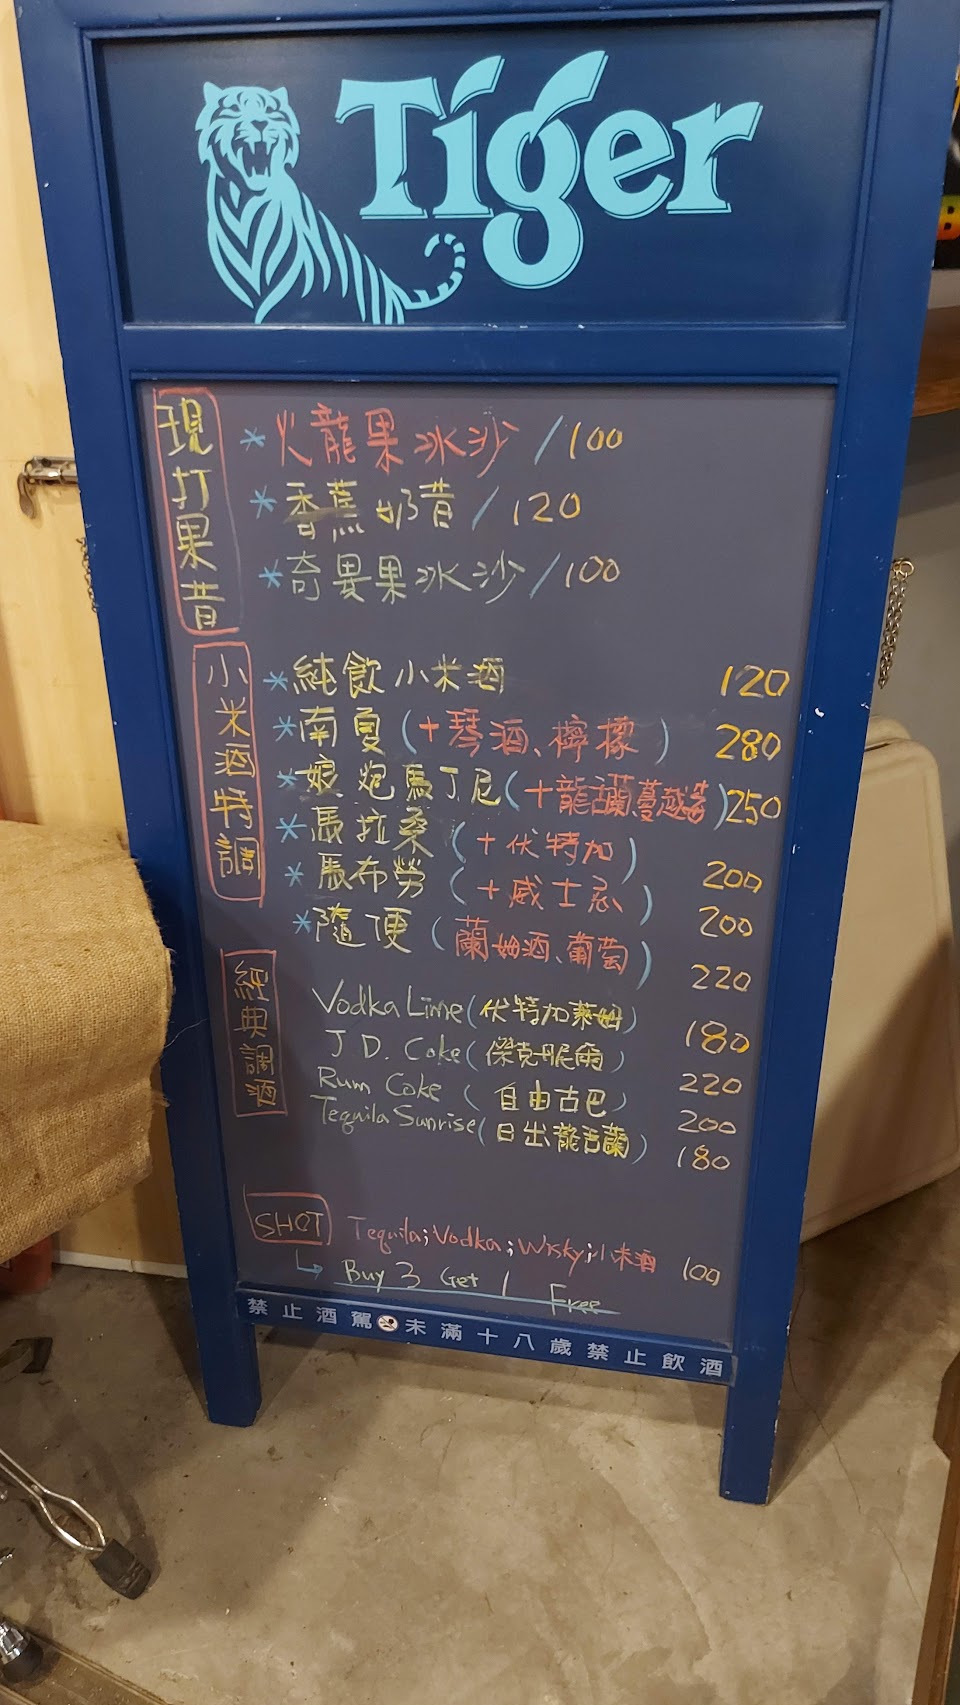 Tiger
現打果昔
*火龍果冰沙/100
*香蕉奶昔/120
*奇異果冰沙/100
小米酒特調
*純飲小米酒 120
*南夏(+琴酒、檸檬) 280
*娘炮馬丁尼(+龍舌蘭、蔓越莓) 250
*馬拉桑(+伏特加) 200
*馬布勞(+威士忌) 200
*隨便(蘭姆酒、葡萄) 220
經典調酒
Vodka Lime(伏特加萊姆) 180
J D. Coke(傑克丹尼爾) 220
Rum Coke(自由古巴) 200
Tequila Sunrise(日出龍舌蘭) 180
SHOT Tequila;Vodka;Wisky;小米酒 100
Buy 3 Get 1 Free
禁止酒駕 未滿十八歲禁止飲酒